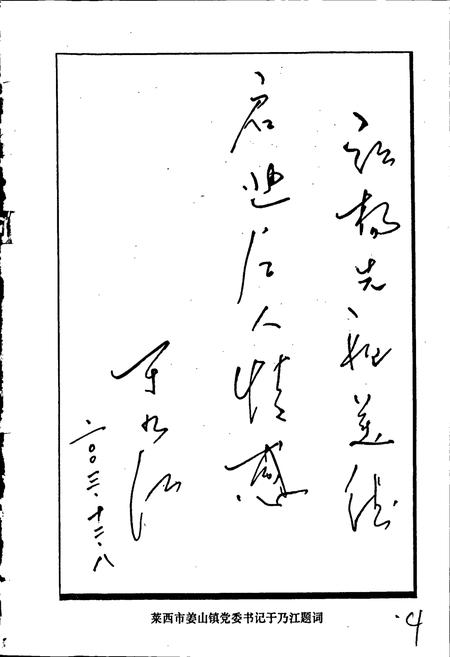 弘扬先祖美德
启迪后人情感
于乃江
二〇〇三.十二.八
莱西市姜山镇党委书记于乃江题词
4